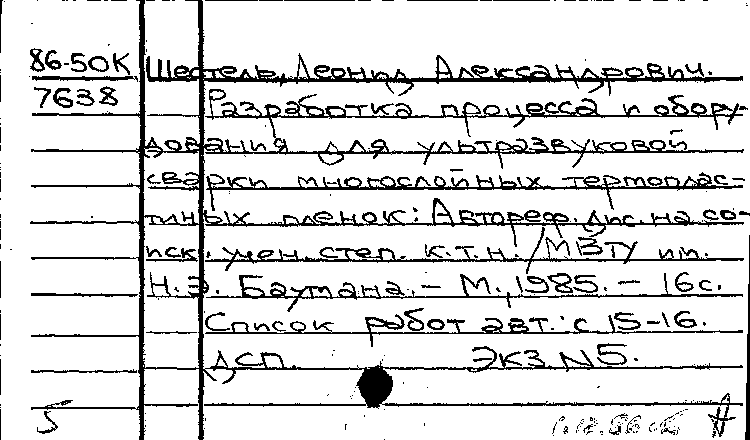 86-50К Шестель, Леонид Александрович.
7638 Разработка процесса и обору-
дования для ультразвуковой
сварки многослойных термоплас-
тичных пленок: Автореф. дис. на со-
иск. учен. степ. к.т.н. /МВТУ им.
Н.Э. Баумана. – М., 1985. – 16 с.
Список работ авт.: с 15-16.
ДСП. Экз. N5.
5